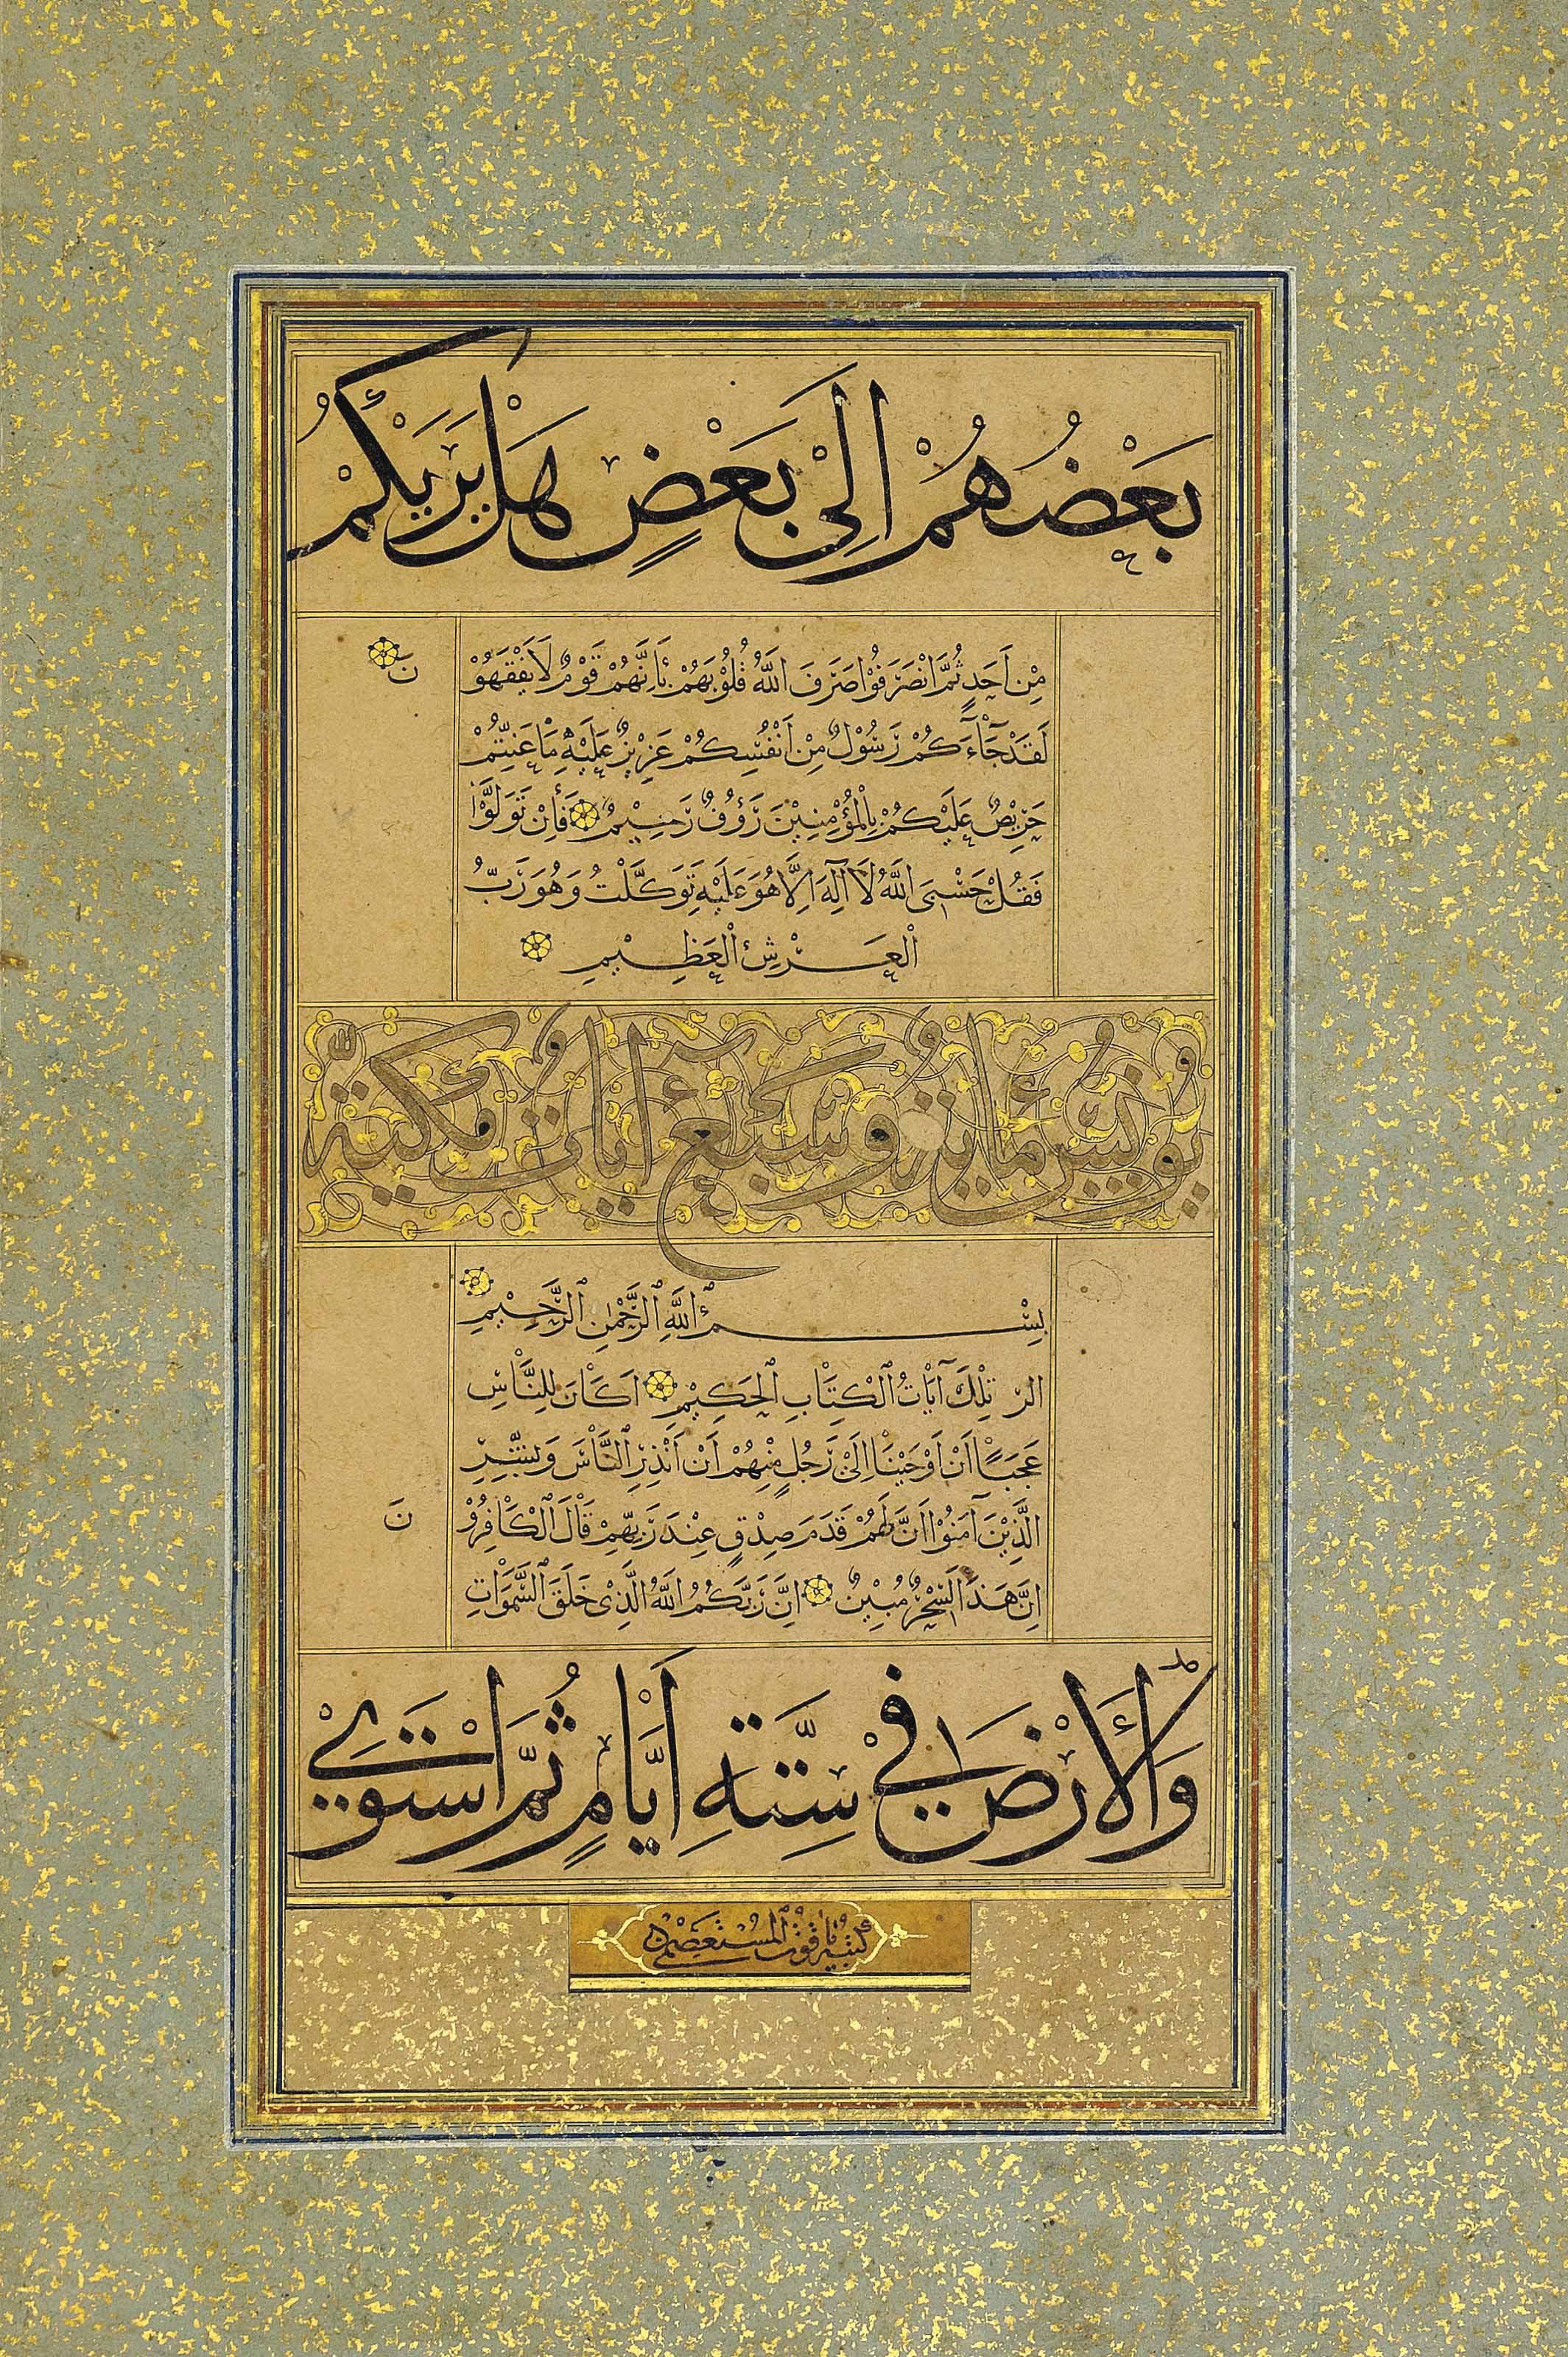 بَعْضُهُمْ اِلىٰ بَعَضٍ هَلْ يَرَيٰكُمْ
مِنْ اَحَدٍ ثُمَّ انْصَرَفُوْا صَرَفَ اللهُ قُلُوْبَهُمْ بِاَنَّهُمْ قَوْمٌ لَا يَفْقَهُوْ
نَ
لَقَدْ جَآءَكُمْ رَسُوْلٌ مِنْ اَنْفُسِكُمْ عَزِيْزٌ عَلَيْهِ مَا عَنِتُّمْ
حَرِيْصٌ عَلَيْكُمْ بِالْمُؤْمِنِيْنَ رَؤُفٌ رَحِيْمٌ فَاِنْ تَوَلَّوْا
فَقُلْ حَسْبِىَ اللهُ لَا اِلٰهَ اِلَّا هُوَ عَلَيْهِ تَوَكَّلْتُ وَهُوَ رَبُّ
الْعَرْشِ الْعَظِيْمِ
يونس مائة وسبع ايات مكية
بِسْمِ اللهِ الرَّحْمٰنِ الرَّحِيْمِ
الر تِلْكَ آيَاتُ الْكِتَابِ الْحَكِيْمِ اَكَانَ لِلنَّاسِ
عَجَبًا اَنْ اَوْحَيْنَا اِلَىٰ رَجُلٍ مِنْهُمْ اَنْ اَنْذِرِ النَّاسَ وَبَشِّرِ
الَّذِيْنَ آمَنُوْا اَنَّ لَهُمْ قَدَمَ صِدْقٍ عِنْدَ رَبِّهِمْ قَالَ الْكَافِرُوْ
نَ
اِنَّ هَذَا لَسِحْرٌ مُبِيْنٌ اِنَّ رَبَّكُمُ اللهُ الَّذِىْ خَلَقَ السَّمٰوَاتِ
وَالْاَرْضَ فِي سِتَّةِ اَيَّامٍ ثُمَّ اسْتَوىٰ
كتبه ياقوت المستعصمي